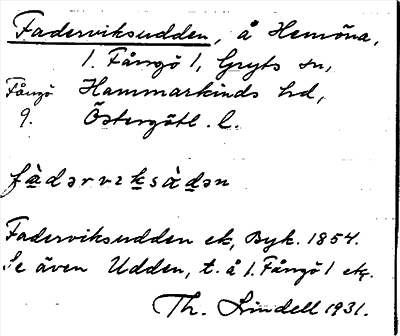 Faderviksudden, å Hemöna,
1. Fångö 1, Gryts sn,
Fångö Hammarkinds hd,
9. Östergötl. l.
fàdərvɪksùdən
Faderviksudden ek, Byk. 1854.
Se även Udden, t. å 1. Fångö 1 ek.
Th. Lindell 1931.